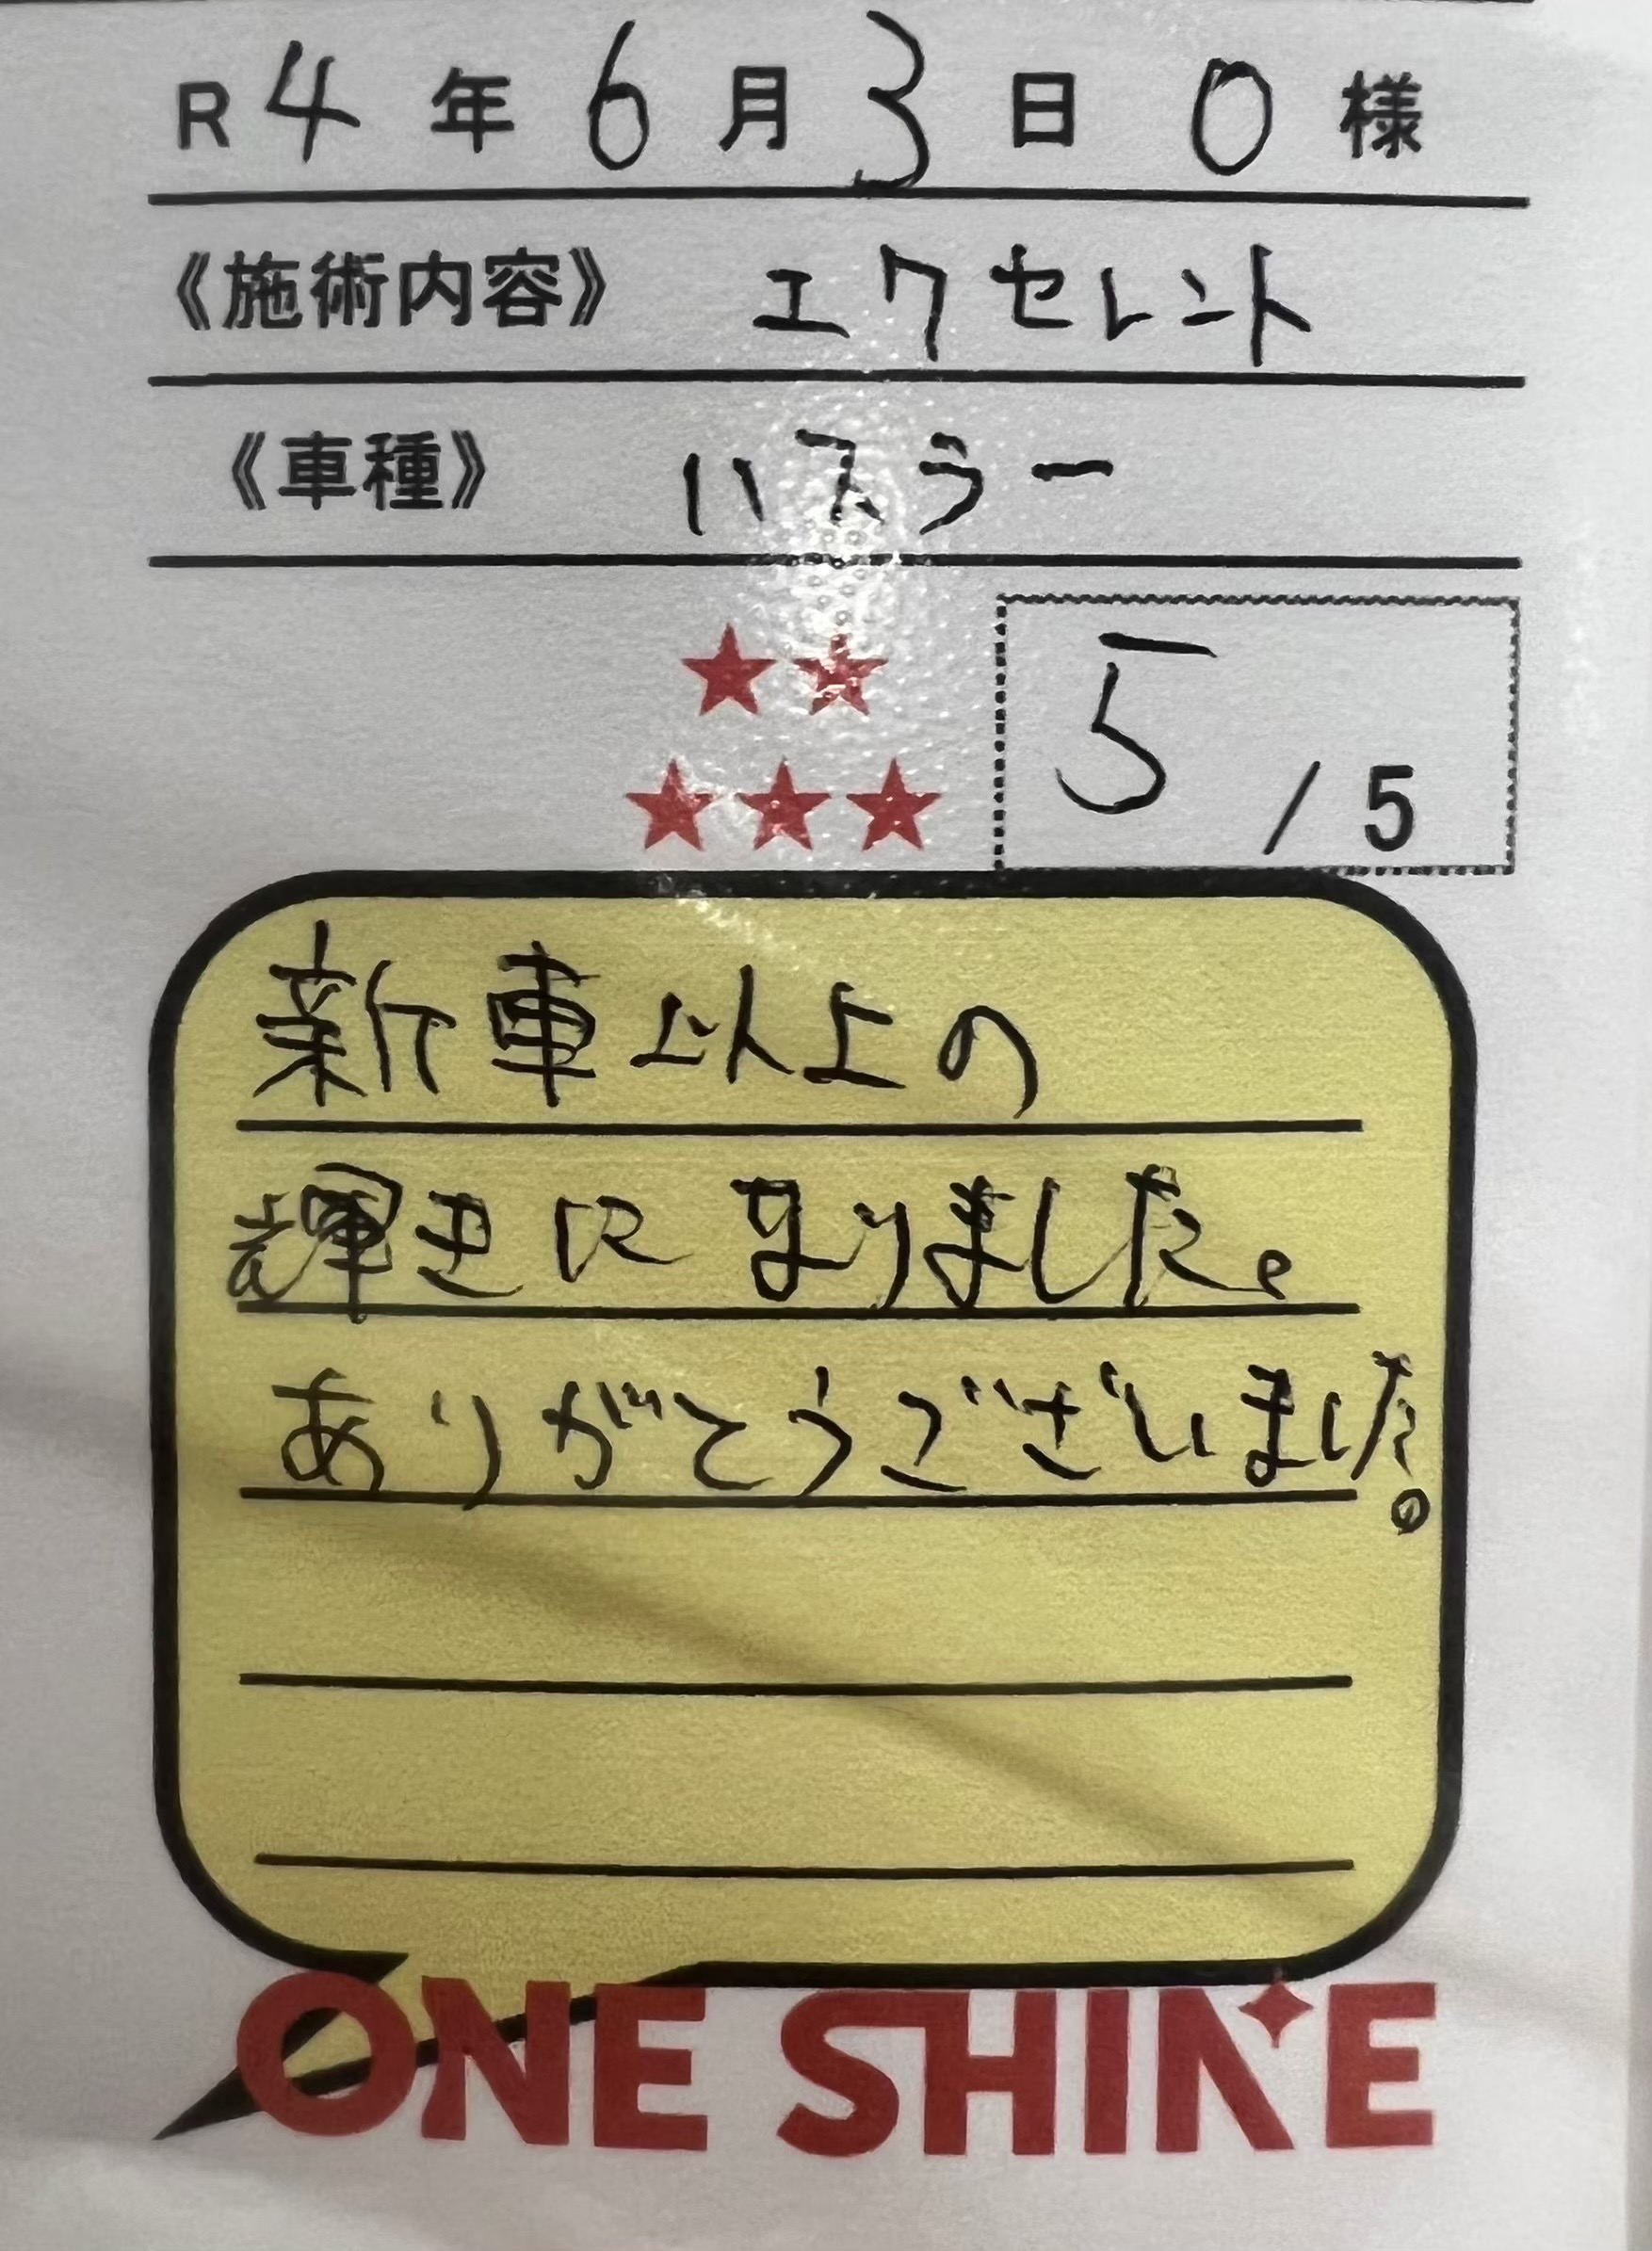 R4年6月3日 O様
《施術内容》 エクセレント
《車種》 ハスラー
★★
★★★
5/5
新車以上の
輝きになりました。
ありがとうございました。
ONE SHINE